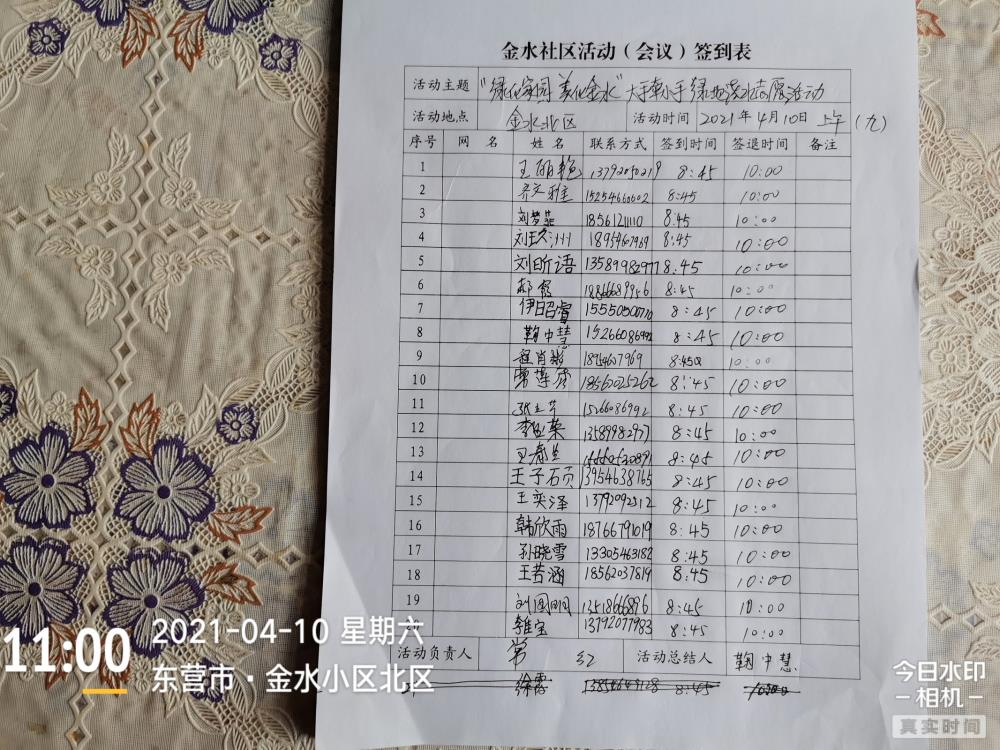 金水社区活动（会议）签到表
活动主题 "绿化家园 美化金水" 大手牵小手 绿地浇水志愿活动
活动地点 金水北区 活动时间 2021年4月10日 上午（九）
序号 网 名 姓 名 联系方式 签到时间 签退时间 备注
1 王丽艳 13792050219 8:45 10:00
2 乔文雅 15254660602 8:45 10:00
3 刘梦菲 1856121110 8:45 10:00
4 18954607969 8:45 10:00
5 刘昕语 13589982977 8:45 10:00
6 郝霞 18866689956 8:45 10:00
7 伊昭睿 15550500770 8:45 10:00
8 鞠中慧 8:45 10:00
9 程肖彬 1895607969 8:45 10:00
10 18560025262 8:45 10:00
11 15266086992 8:45 10:00
12 13589982977 8:45 10:00
13 8:45 10:00
14 王子硕 13954638765 8:45 10:00
15 王奕泽 13792092312 8:45 10:00
16 韩欣雨 18766791019 8:45 10:00
17 孙晓雪 13305463182 8:45 10:00
18 王若涵 18562037819 8:45 10:00
19 刘国明 1351866696 8:45 10:00
李维宝 13792077983 8:45 10:00
活动负责人 常 红 活动总结人 鞠中慧
徐霞 8:45
11:00
2021-04-10 星期六
东营市·金水小区北区
今日水印
相机
真实时间